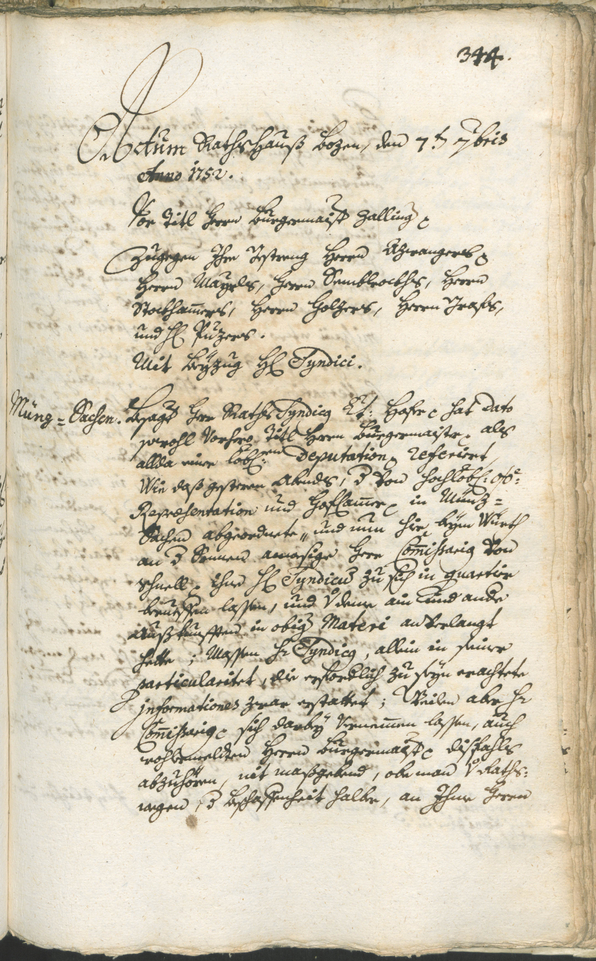 344.
Actum Rathshauß Bozen, den 7t. 7bris
Anno 1752.
Vor Titl Herrn Burgermaist. Zalling.
Zugegen Ihr Gestreng Herrn
Herrn Mayrls, Herrn Herrn
Stockhammers, Herrn Holzers, Herrn Grafs,
und H. Puzers.
Mit Beyzug H. Syndici.
Münz=Sachen. Herr Raths Syndicus hat dato
sowohl Titl Herrn Burgermaister als
allda einer löbl. Deputation referiert,
Wie daß gestern Abends, von Hochlöbl. Ober
Repraesentation und Hofkammer in Münz=
Sachen abgeordnete, und nun hier beym Würth
an d. Sonnen Herr Comissarius von
Schnell, ihne H. Syndicus zu sich in quartier
beruffen lassen, und von deme ain und ande
Außkunfften in obig Materi anverlangt
hette; Massen H. Syndicus, allein in seiner
particularitet, die erforderlich zu seyn erachtete
informationes zwar erstattet; Weilen aber H.
Comissarius sich darbey vernemmen lassen, auch
wohlermelten Herrn Burgermaister dißfahls
abzuhören, mit maßgebend, ob man Raths=
wegen, d. Beschaffenheit halber, an Ihme Herrn